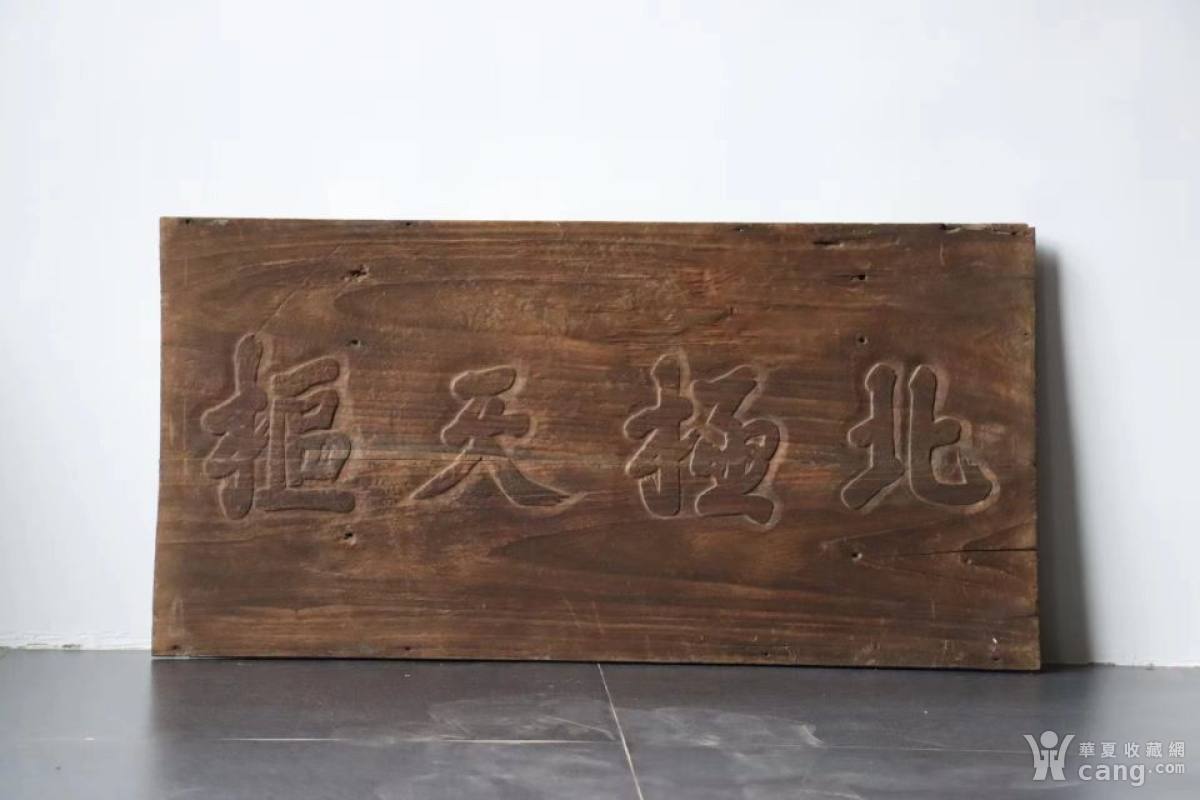 北極天樞
華夏收藏網
cang.com